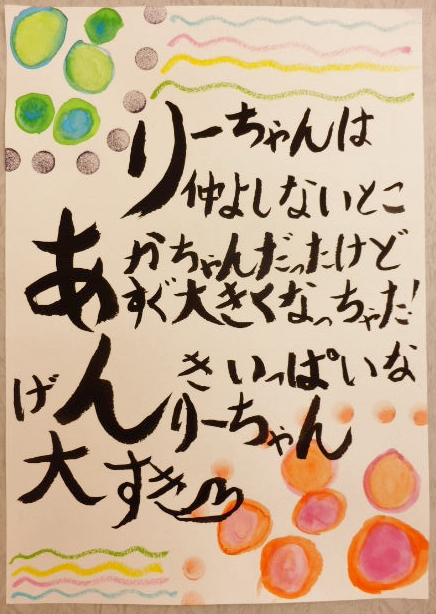 りーちゃんは
仲よしないとこ
あかちゃんだったけど
すぐ大きくなっちゃった!
げんきいっぱいな
りーちゃん
大すき